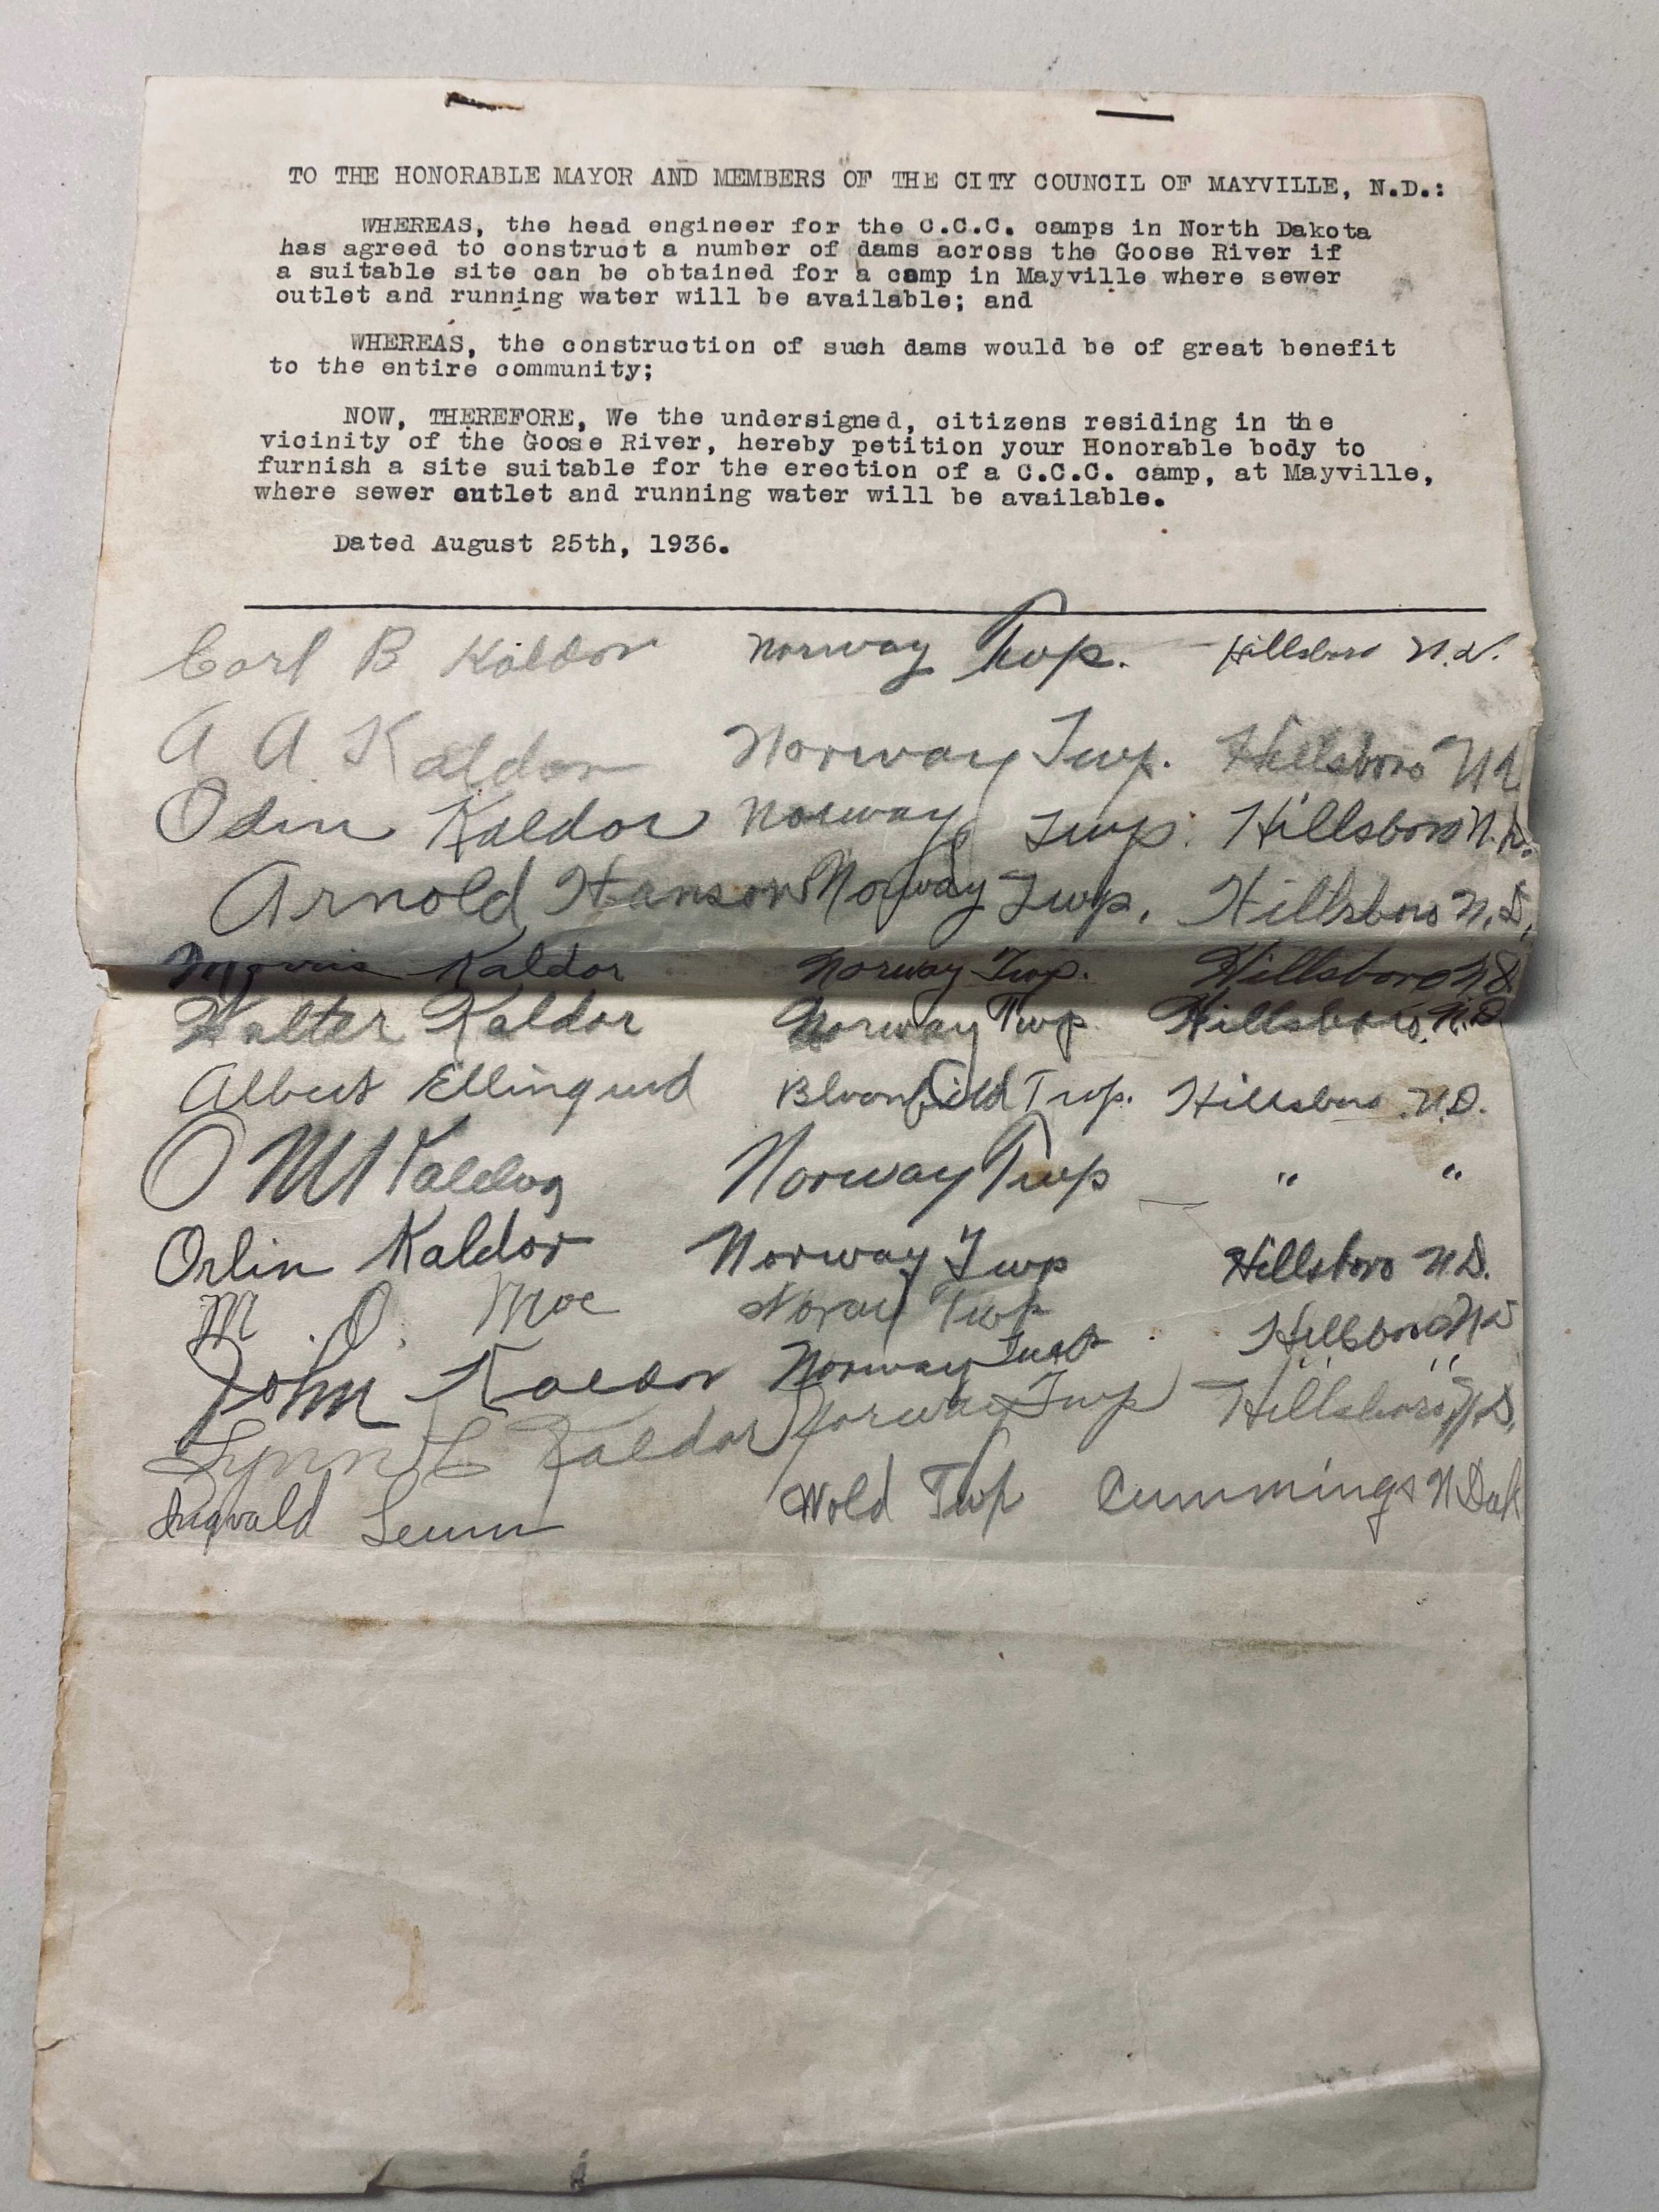 TO THE HONORABLE MAYOR AND MEMBERS OF THE CITY COUNCIL OF MAYVILLE, N.D.:
WHEREAS, the head engineer for the C.C.C. camps in North Dakota
has agreed to construct a number of dams across the Goose River if
a suitable site can be obtained for a camp in Mayville where sewer
outlet and running water will be available; and
WHEREAS, the construction of such dams would be of great benefit
to the entire community;
NOW, THEREFORE, We the undersigned, citizens residing in the
vicinity of the Goose River, hereby petition your Honorable body to
furnish a site suitable for the erection of a C.C.C. camp, at Mayville,
where sewer outlet and running water will be available.
Dated August 25th, 1936.
Carl B Kaldor Norway Twp. - Hillsboro N.D.
A A. Kaldor Norway Twp. Hillsboro N D
Odin Kaldor Norway Twp. Hillsboro N.D.
Arnold Hanson Norway Twp. Hillsboro N.D.
Morris Kaldor Norway Twp. Hillsboro N.D.
Walter Kaldor Norway Twp. Hillsboro. N.D.
Albert Bloomfield Twp. Hillsboro. N.D.
O M Kaldor Norway Twp " "
Orlin Kaldor Norway Twp Hillsboro N.D.
M. O. Moe Noray Twp Hillsboro N D
John Kaldor Norway " "
Lynn C Kaldor Norway Twp Hillsboro, N.D.
Ingvald Wold Twp Cummings N Dak